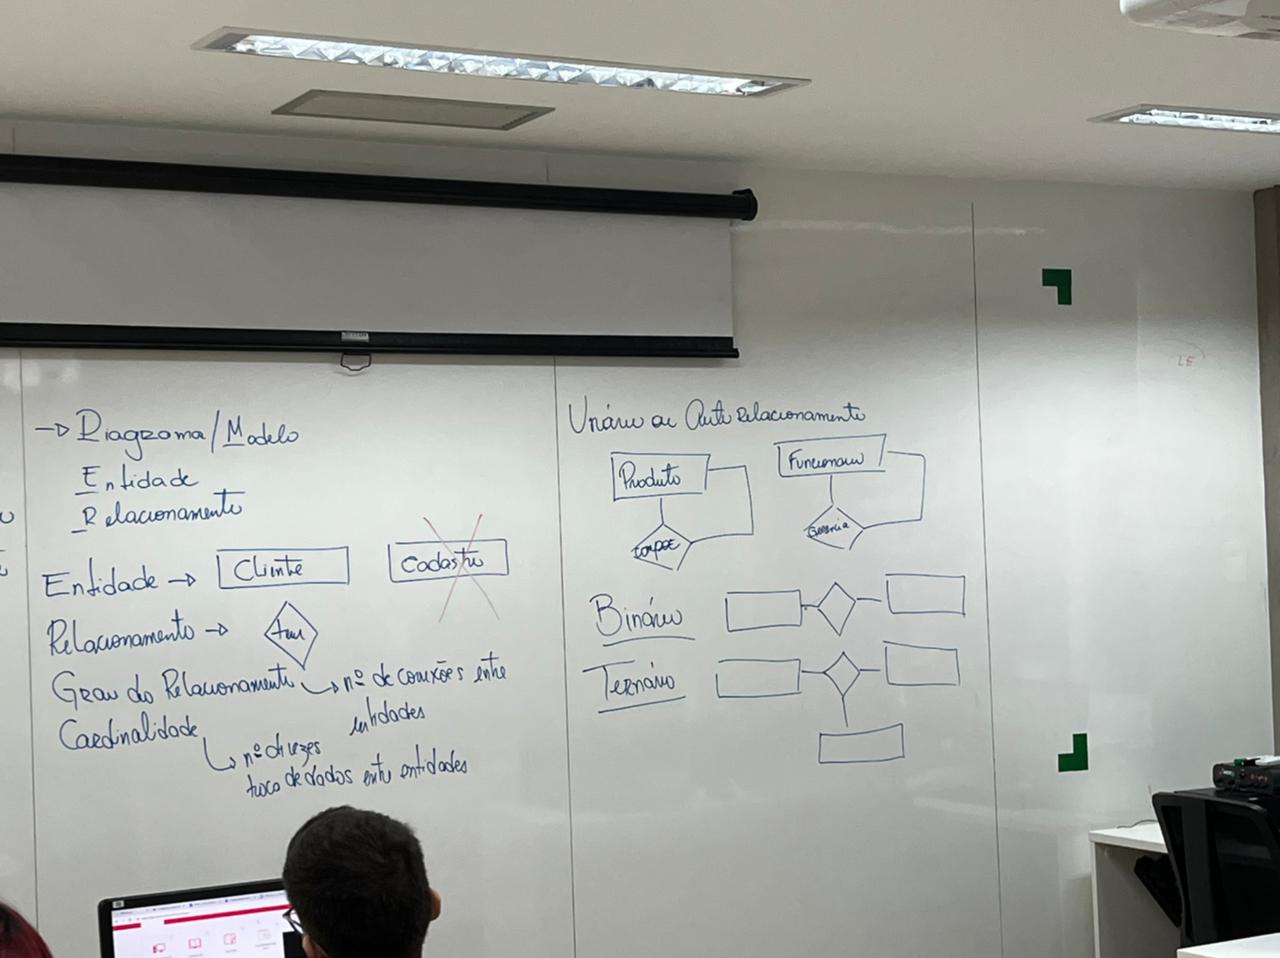 → Diagrama/Modelo
Entidade
Relacionamento
Entidade →
Cliente
Cadastro
Relacionamento →
tem
Grau do Relacionamento
nº de conexões entre
entidades
Cardinalidade
nº de vezes
troca de dados entre entidades
Unário ou Auto Relacionamento
Produto
Funcionario
compõe
Gerencia
Binário
Ternário
LE